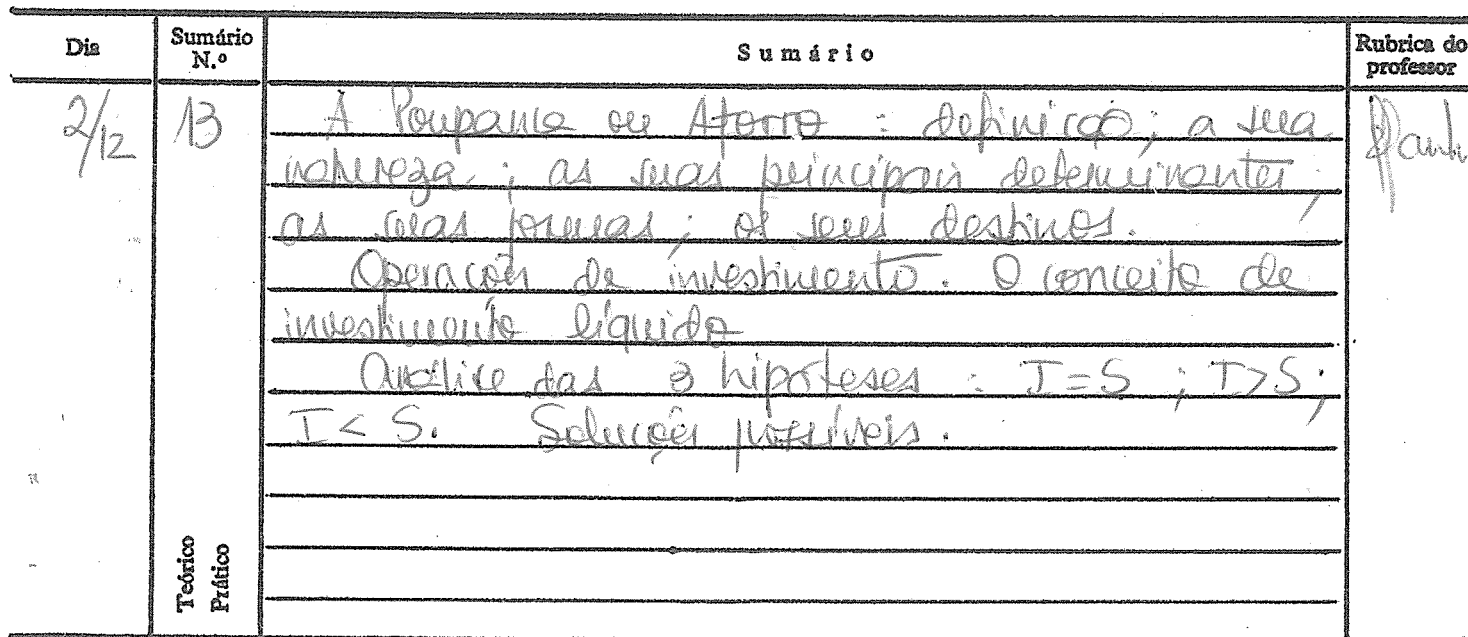 Dia Sumário N.º Sumário Rubrica do professor
2/12 13 A Poupança ou Aforro : definição ; a sua
natureza ; as suas principais determinantes ;
as suas formas ; os seus destinos.
Operações de investimento. O conceito de
investimento líquido
Análise das 3 hipóteses : I=S ; I>S ;
I < S. Soluções possíveis.
Teórico
Prático